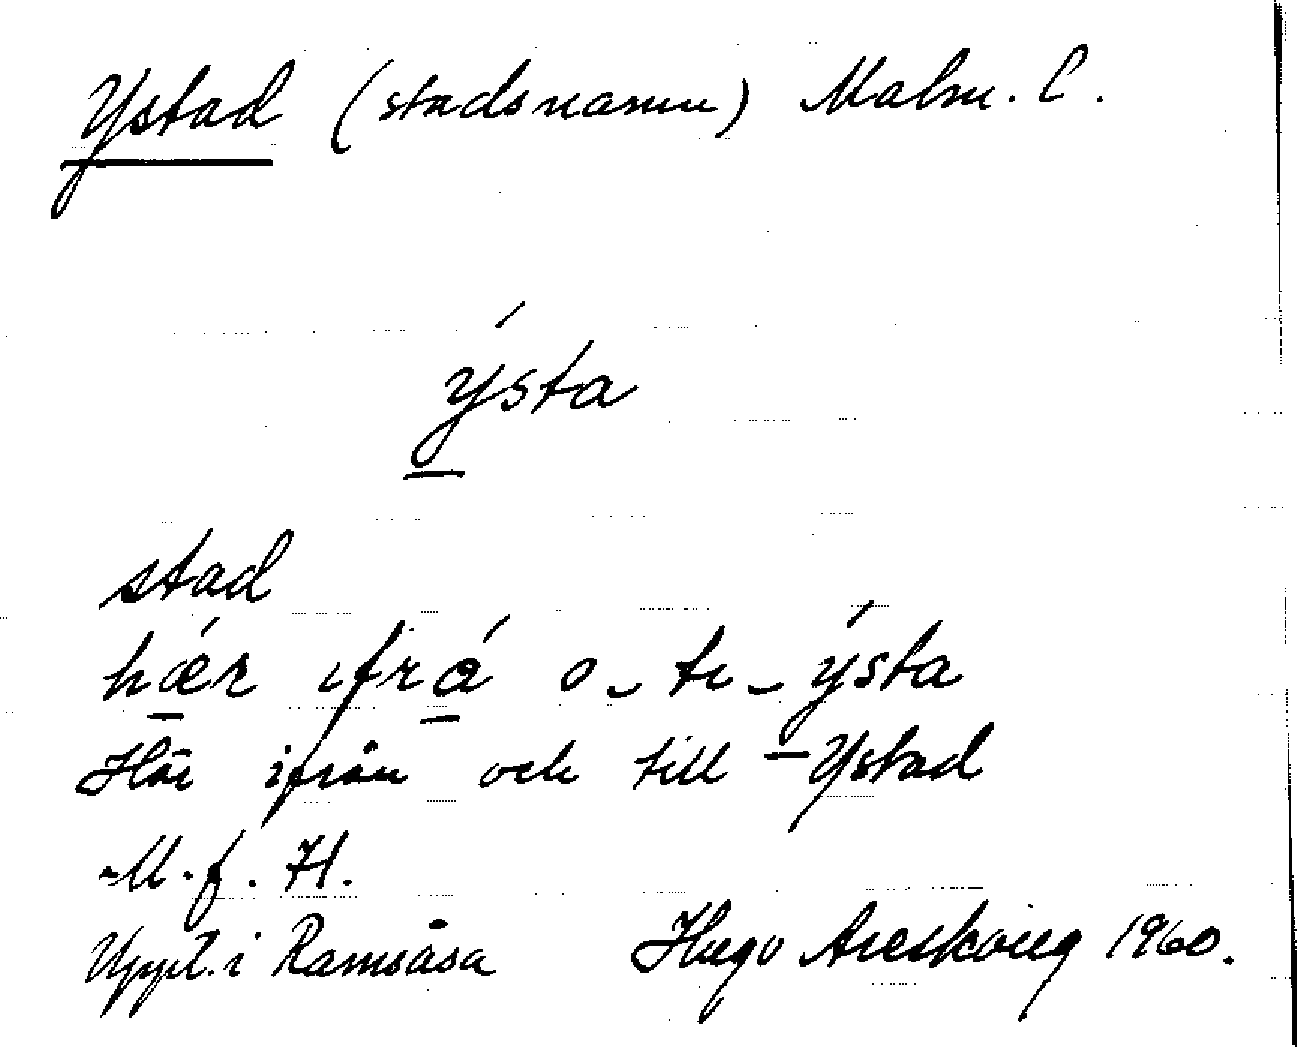 Ystad (stadsnamn) Malm. l.
ýsta
stad
hǽr ifrá o - te - ýsta
Här ifrån och till - Ystad
M. f. H.
Uppt. i Ramsåsa Hugo Areskoug 1960.